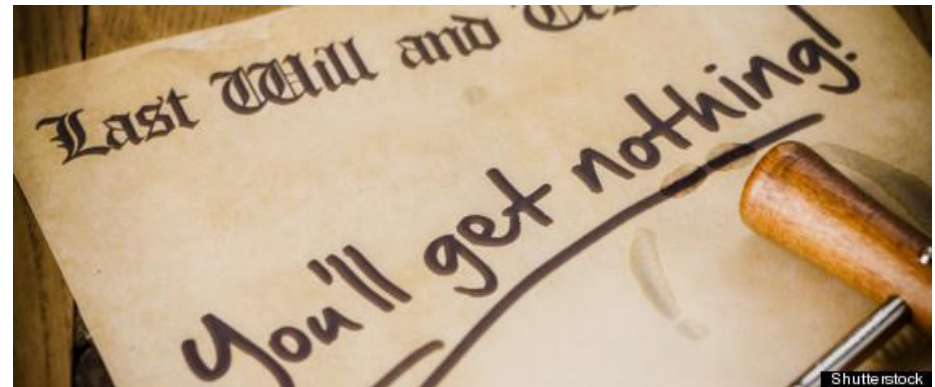 Last Will and Tes
You'll get nothing!
Shutterstock